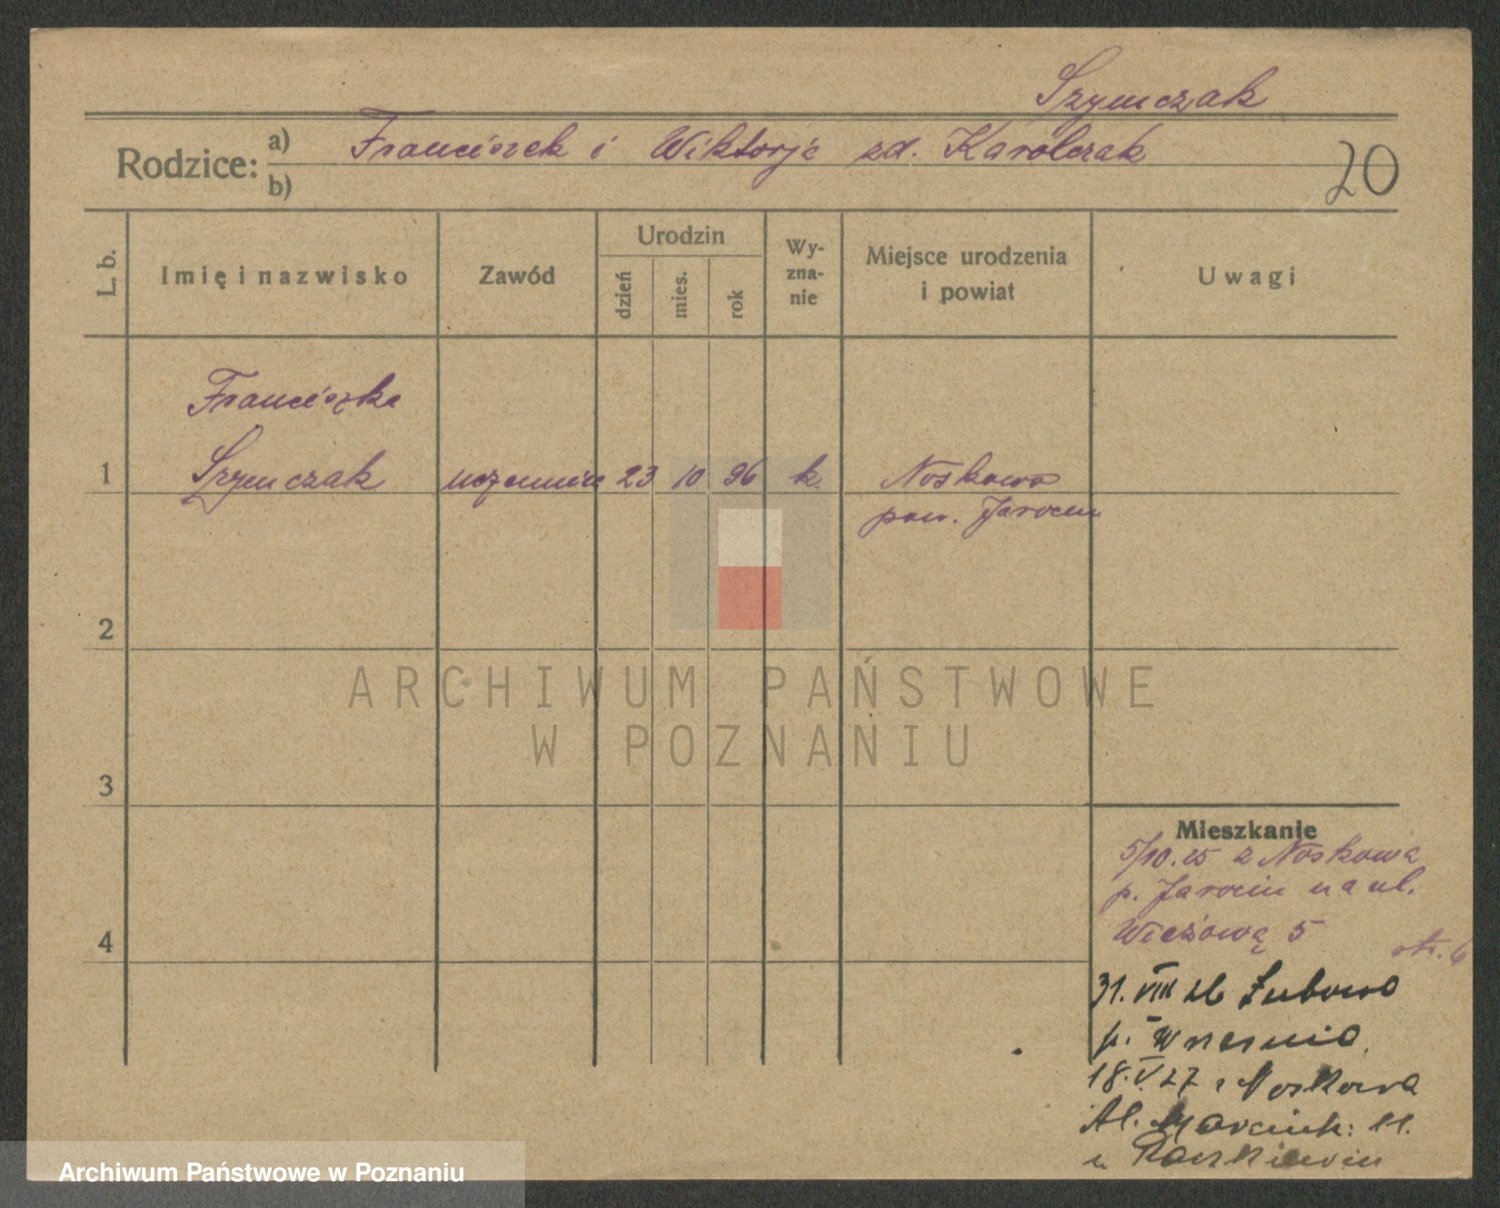 Szymczak
Rodzice: a) Franciszek i Wiktorje zd. Karolczak
b)
20
L. b.
Imię i nazwisko
Zawód
Urodzin
dzień
mies.
rok
Wy-
zna-
nie
Miejsce urodzenia
i powiat
Uwagi
Franciszka
1 Szymczak uczennica 23 10 96 k. Noskowo
pow. Jarocin
2
3
4
Mieszkanie
5/10.25 z Noskowa
p. Jarocin na ul.
Wieżową 5
str. 6
31. VIII 26 Łubowo
p. Września
18.V.27 z Noskowa
Al. Marcink: 11.
u
ARCHIWUM PAŃSTWOWE
W POZNANIU
Archiwum Państwowe w Poznaniu